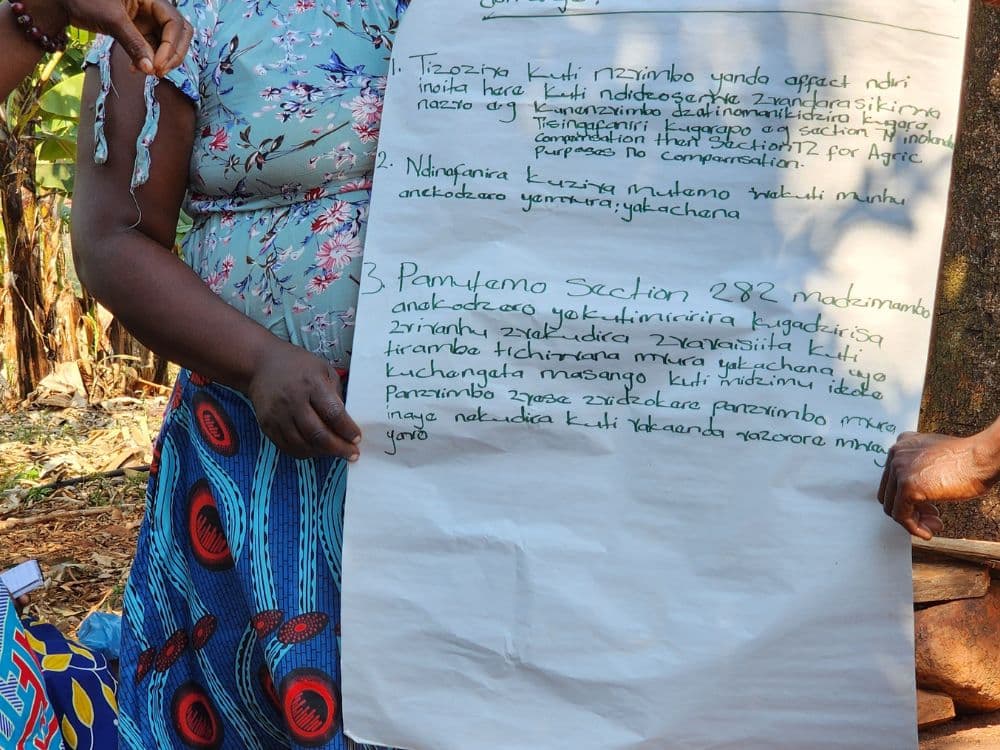 1. Tizoziva kuti nzvimbo yanda affect ndiri
inoita here kuti ndideosenwe zvandarasikirwa
nazvo e.g kunenzvimbo dzatinomanikidzira kugara
Tisingafaniri kugarapo e.g section
compensation then Section 72 for Agric
Purposes No compansation.
2. Ndinofanira kuziva mutemo wekuti munhu
anekodzero yemvura; yakachena
3. Pamutemo Section 282 madzimambo
anekodzero yekutimiririra kugadzirisa
zvivanhu zvekudira zvavaisiita kuti
tirambe tichiwana mvura yakachena uye
kuchengeta masango kuti midzimu
Panzvimbo zvese zvidzokere panzvimbo mvura
inaye nekudira kuti vakaenda vazorore mweya
yavo